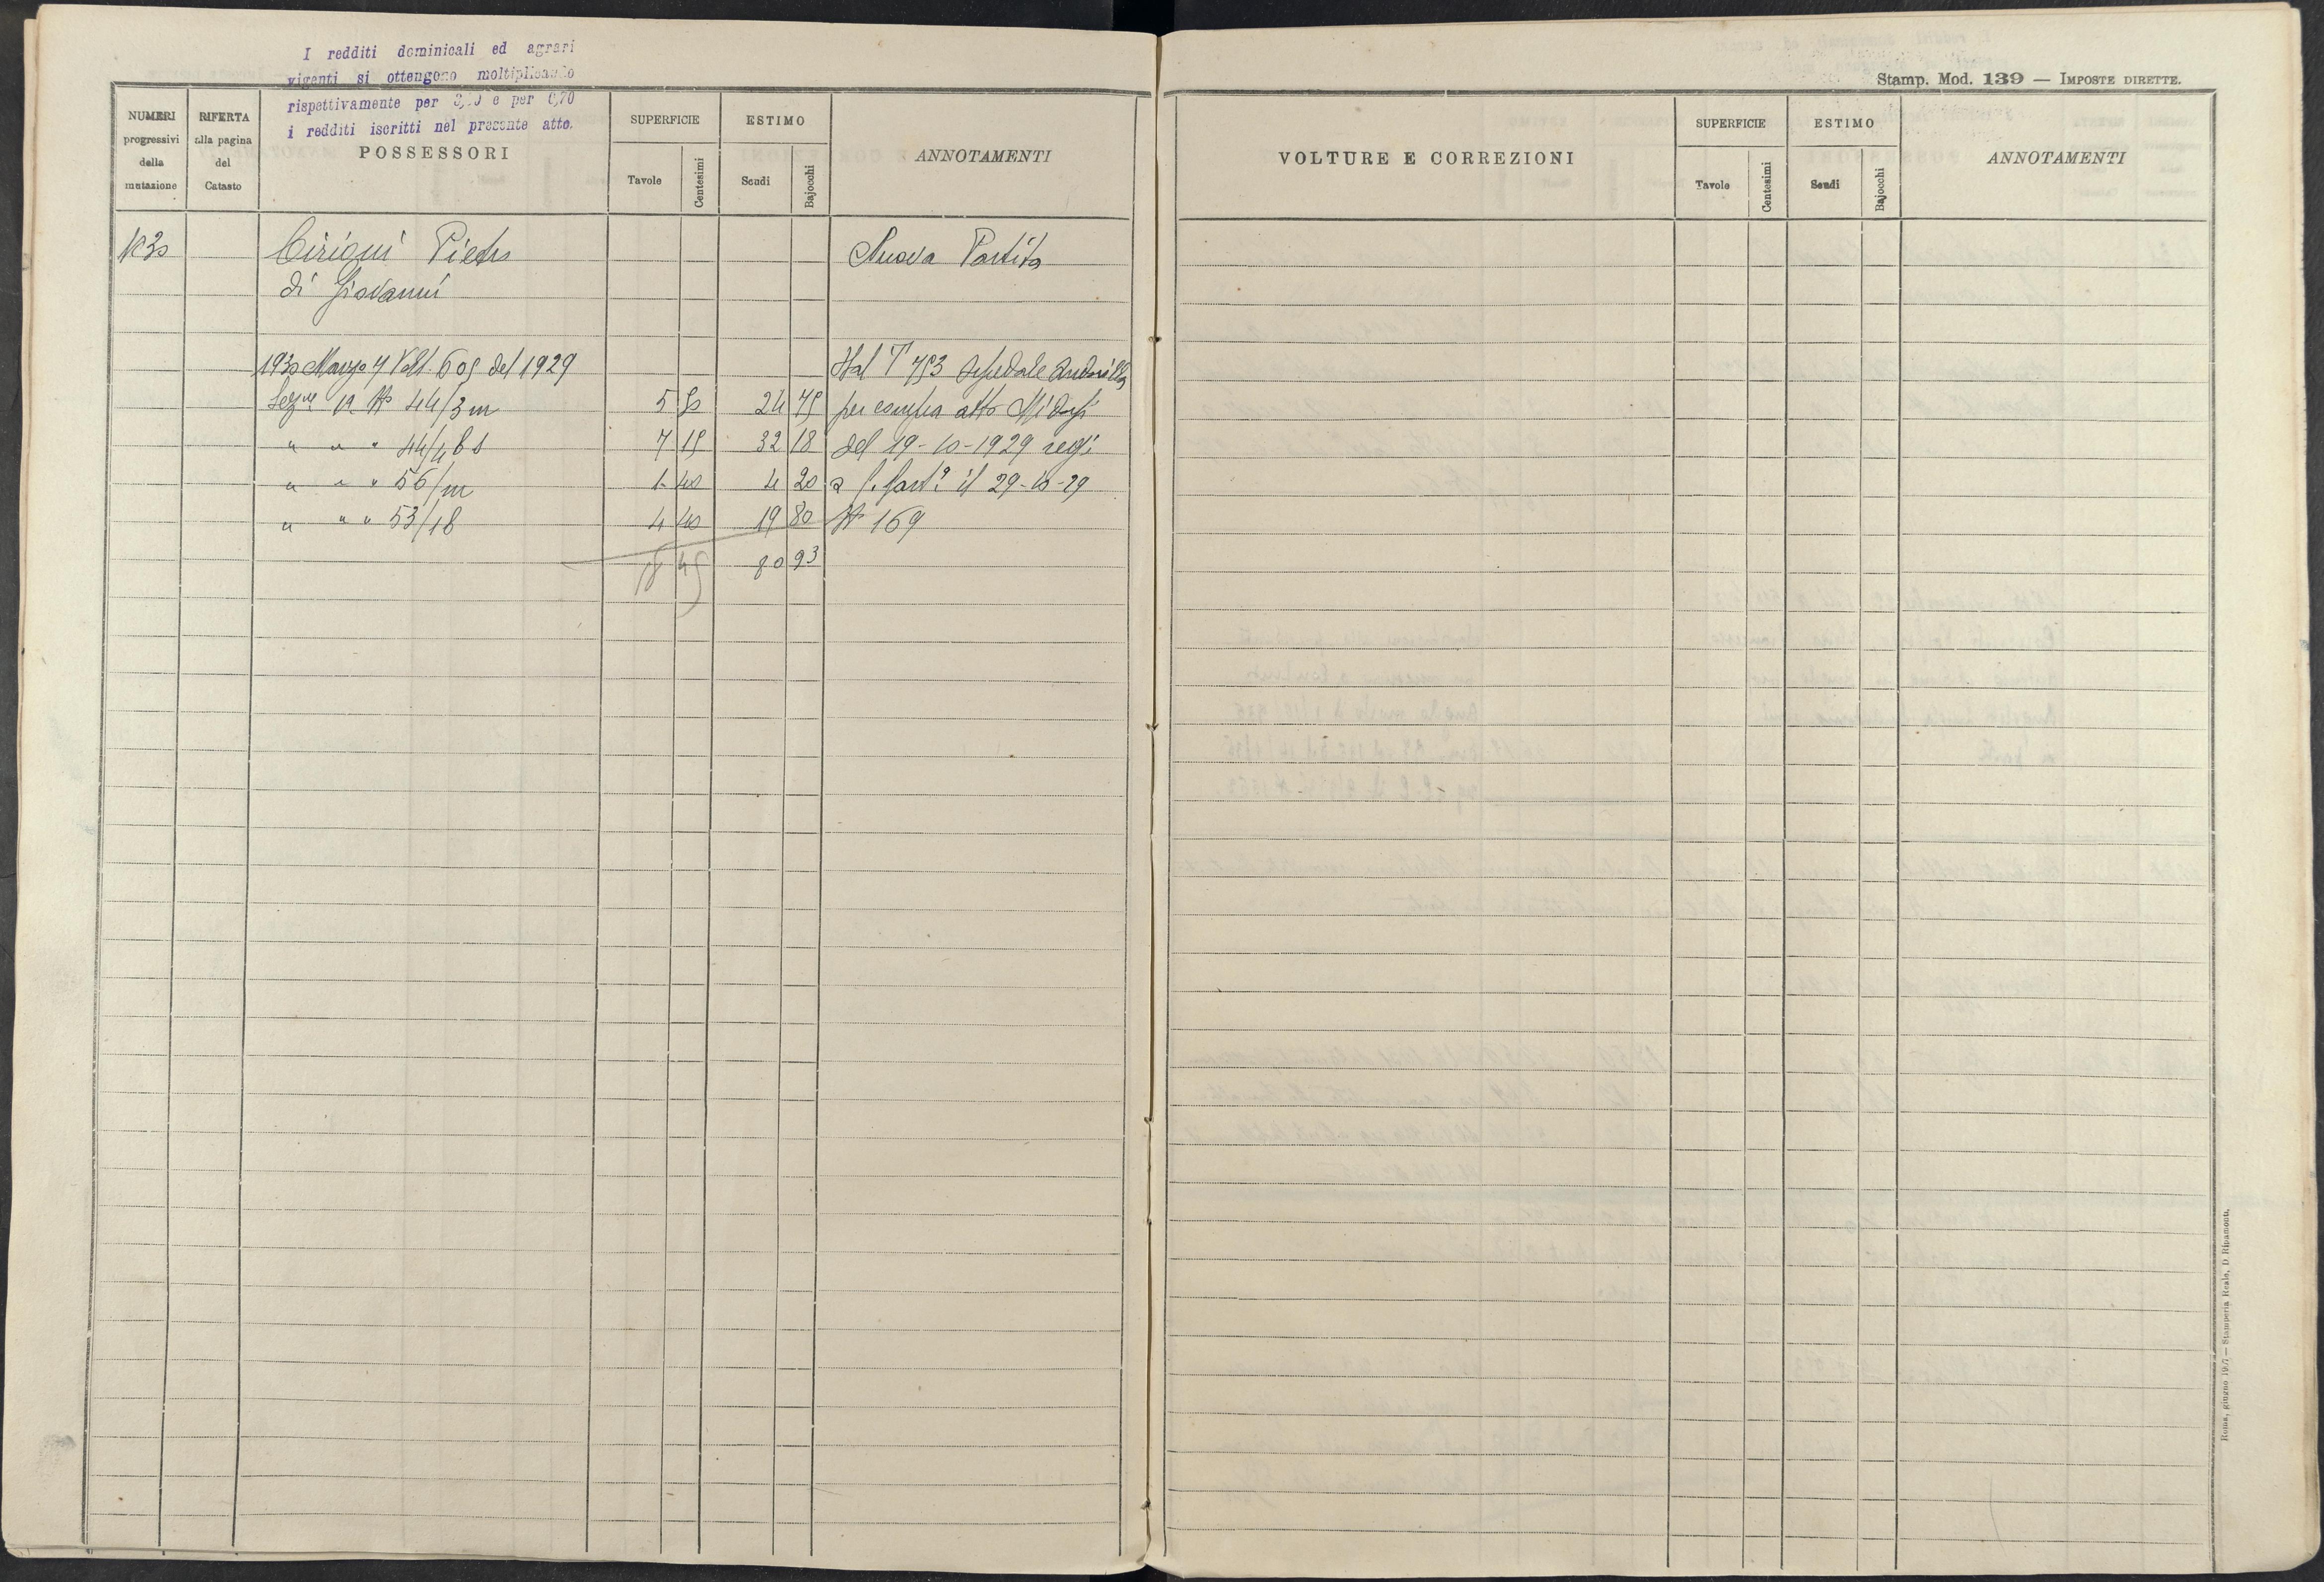 I redditi dominicali ed agrari
vigenti si ottengono moltiplicando
rispettivamente per e per 0,70
i redditi iscritti nel presente atto.
NUMERI
progressivi
della
mutazione
RIFERTA
alla pagina
del
Catasto
POSSESSORI
SUPERFICIE
Tavole
Centesimi
ESTIMO
Scudi
Bajocchi
ANNOTAMENTI
Pietro
Nuova Partita
di Giovanni
1930 Marzo 7 Volt. 605 del 1929
Dal 753
Sez.ne N. 44/3 m 5 24 75 per compra atto
" " " 44/4 7 15 32 18 del 19-10-1929 reg.
" " " 56/m 1 40 4 20 a il 29-10-29
" " " 53/18 4 40 19 80 N 169
18 45 80 93
Stamp. Mod. 139 — IMPOSTE DIRETTE.
VOLTURE E CORREZIONI
SUPERFICIE
Tavole
Centesimi
ESTIMO
Scudi
Bajocchi
ANNOTAMENTI
Roma, giugno — Stamperia Reale, D. Ripamonti.